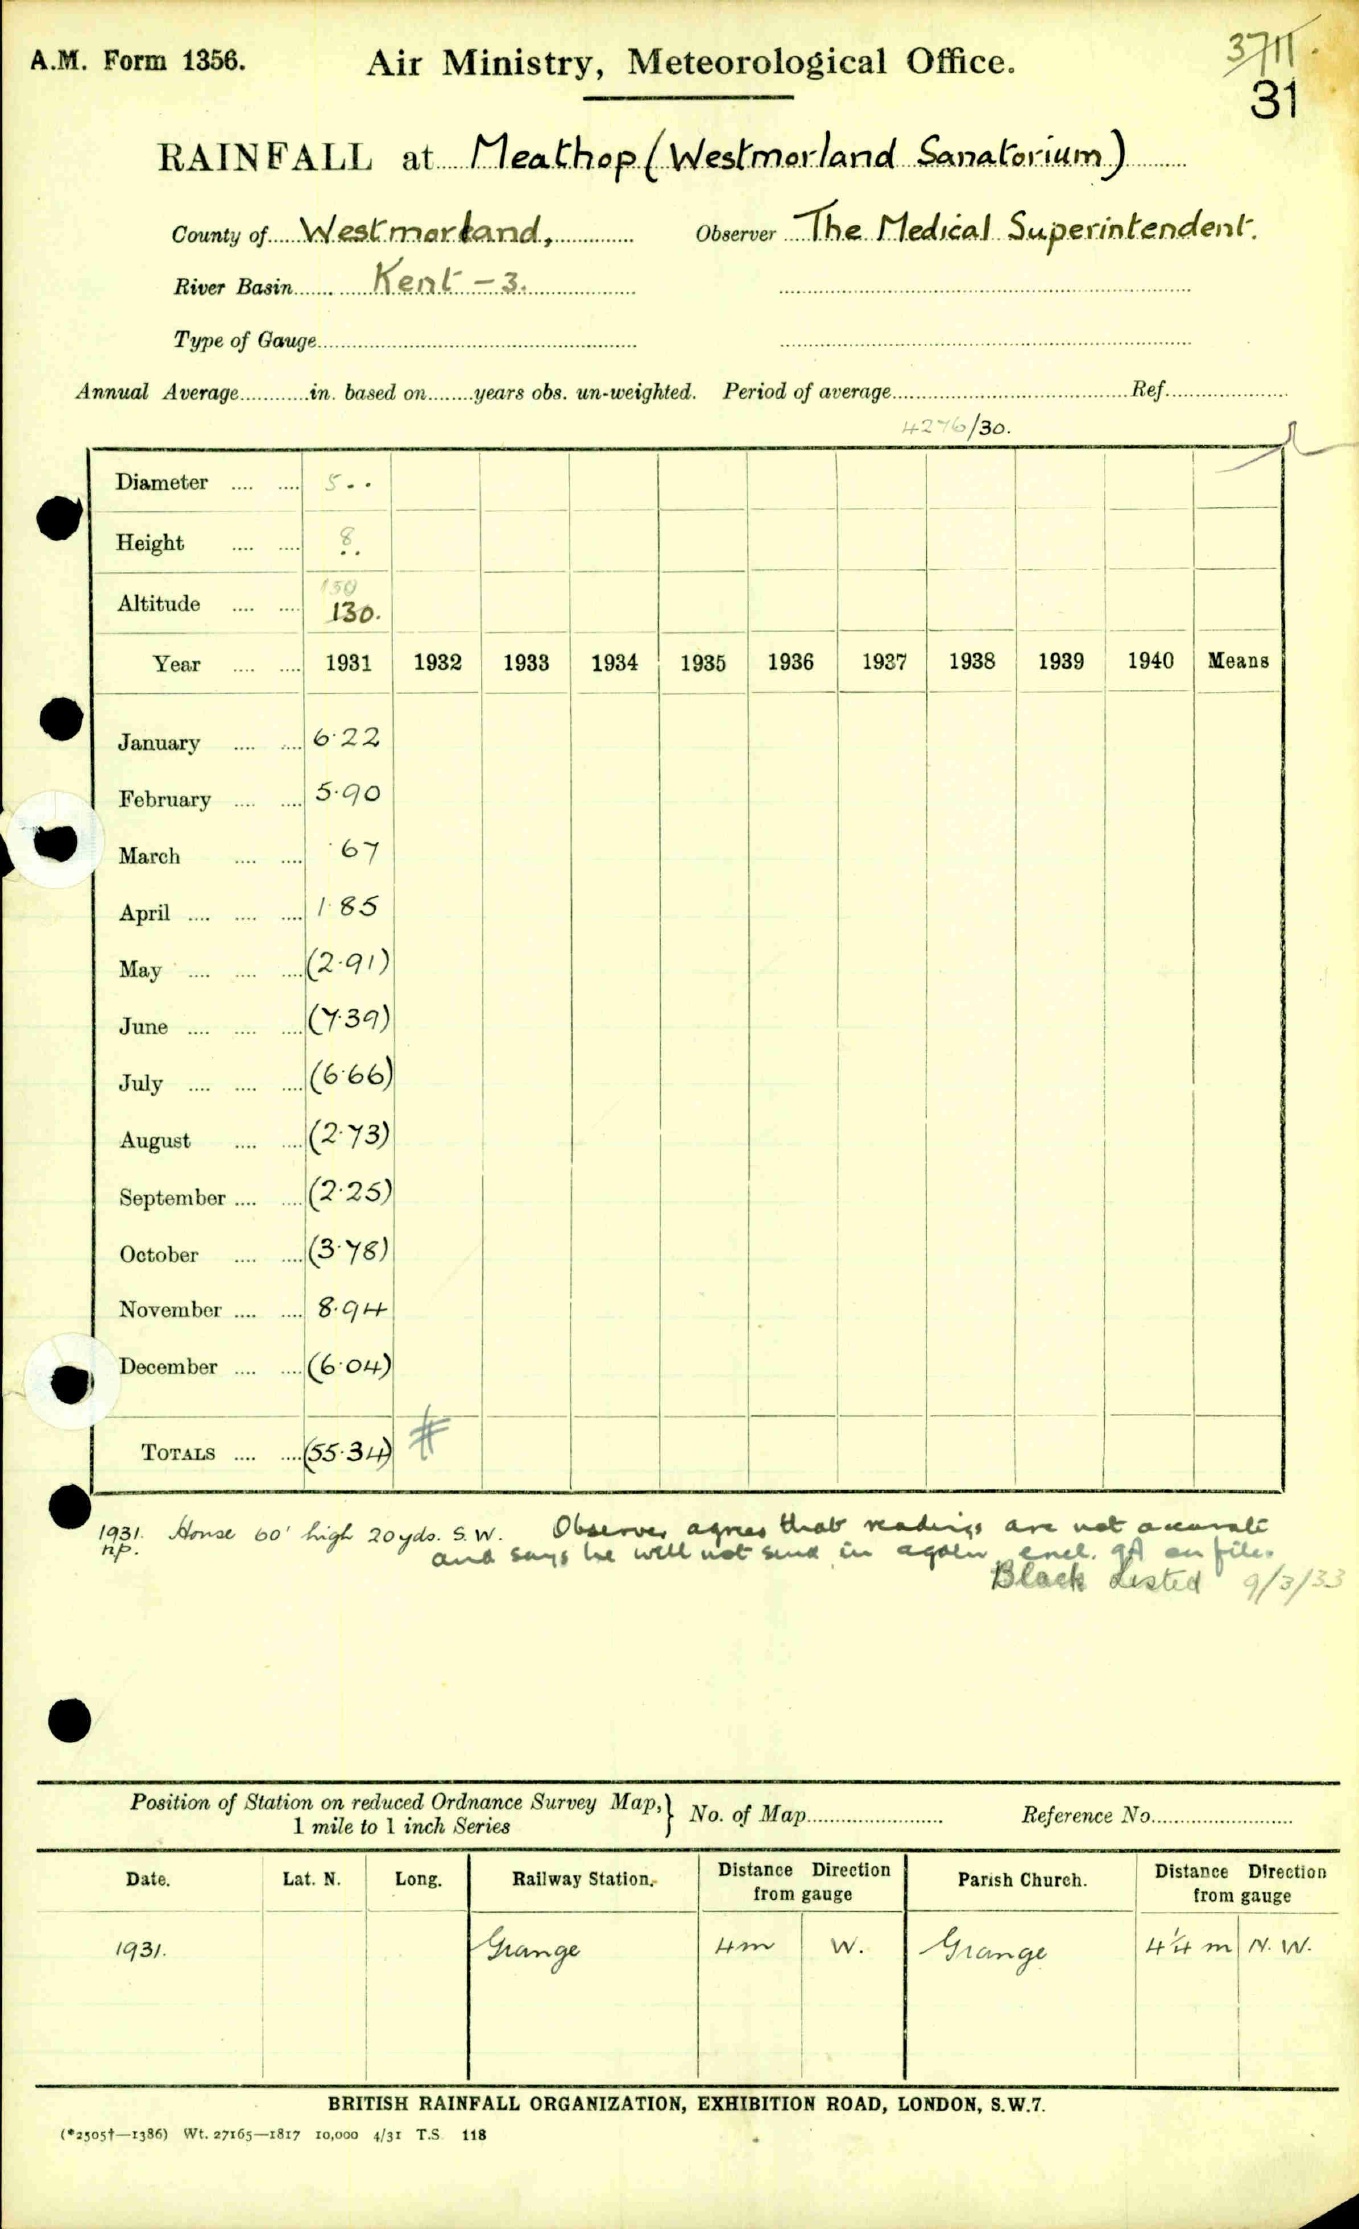 A.M. Form 1356.
Air Ministry, Meteorological Office.
3711
31
RAINFALL at Meathop (Westmorland Sanatorium)
County of Westmorland, Observer The Medical Superintendent.
River Basin Kent - 3.
Type of Gauge
Annual Average in. based on years obs. un-weighted. Period of average Ref.
4276/30.
Diameter 5 . .
Height 8 . .
150
Altitude 130.
Year 1931 1932 1933 1934 1935 1936 1937 1938 1939 1940 Means
January 6·22
February 5·90
March ·67
April 1·85
May (2·91)
June (7·39)
July (6·66)
August (2·73)
September (2·25)
October (3·78)
November 8·94
December (6·04)
TOTALS (55·34) #
1931. House 60' high 20 yds. S.W. Observer agrees that readings are not accurate
np. and says he will not send in again encl. 9A on file.
Black Listed 9/3/33
Position of Station on reduced Ordnance Survey Map, } No. of Map Reference No.
1 mile to 1 inch Series
Date. Lat. N. Long. Railway Station. Distance Direction from gauge Parish Church. Distance Direction from gauge
1931. Grange 4m W. Grange 4¼ m N.W.
BRITISH RAINFALL ORGANIZATION, EXHIBITION ROAD, LONDON, S.W.7.
(*2505†—1386) Wt. 27165—1817 10,000 4/31 T.S. 118